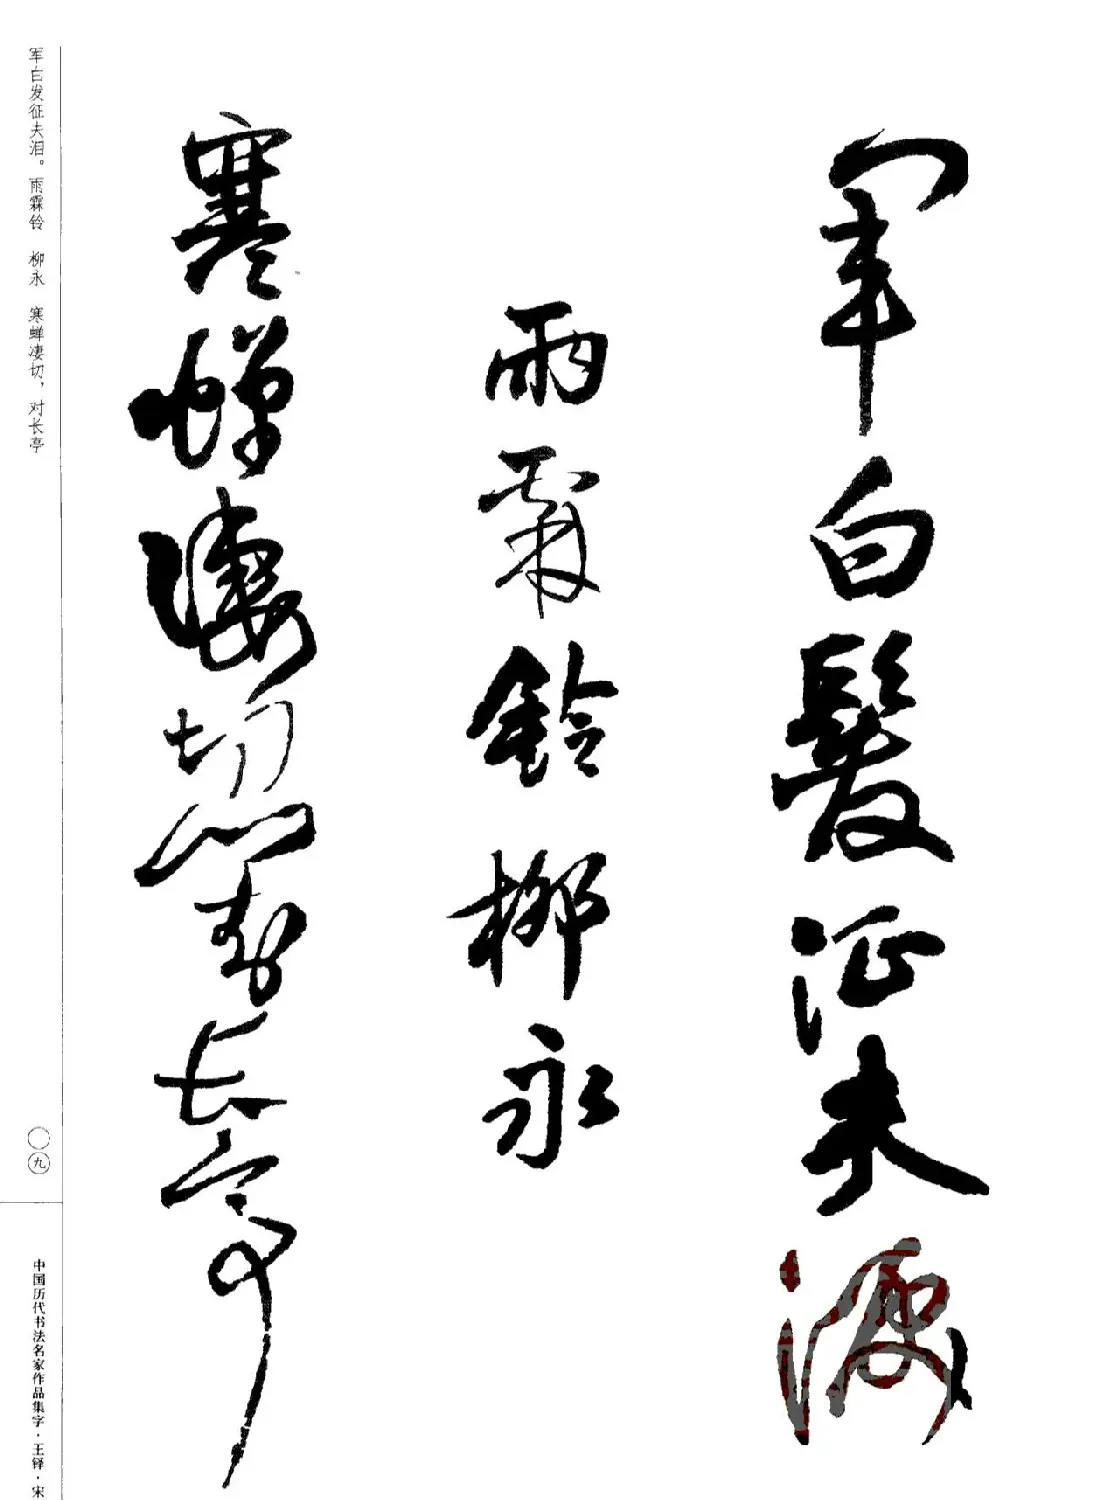 軍白髮征夫淚
雨霖鈴柳永
寒蟬凄切對長亭
军白发征夫泪。雨霖铃 柳永 寒蝉凄切，对长亭
〇九
中国历代书法名家作品集字·王铎·宋